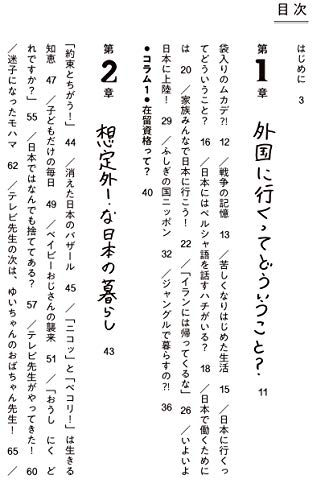 目次
はじめに 3
第1章 外国に行くってどういうこと? 11
袋入りのムカデ?! 12 /戦争の記憶 13 /苦しくなりはじめた生活 15 /日本に行くっ
てどういうこと? 16 /日本にはペルシャ語を話すハチがいる? 18 /日本で働くために
は 20 /家族みんなで日本に行こう! 22 /「イランには帰ってくるな」 26 /いよいよ
日本に上陸! 29 /ふしぎの国ニッポン 32 /ジャングルで暮らすの?! 36
●コラム1●在留資格って? 40
第2章 想定外!な日本の暮らし 43
「約束とちがう!」 44 /消えた日本のバザール 45 /「ニコッ」と「ペコリ!」は生きる
知恵 47 /子どもだけの毎日 49 /ベイビーおじさんの襲来 51 /「おうし にく ど
れですか?」 55 /日本ではなんでも捨ててある? 57 /テレビ先生がやってきた! 60
/迷子になったモハマ 62 /テレビ先生の次は、ゆいちゃんのおばちゃん先生! 65 /